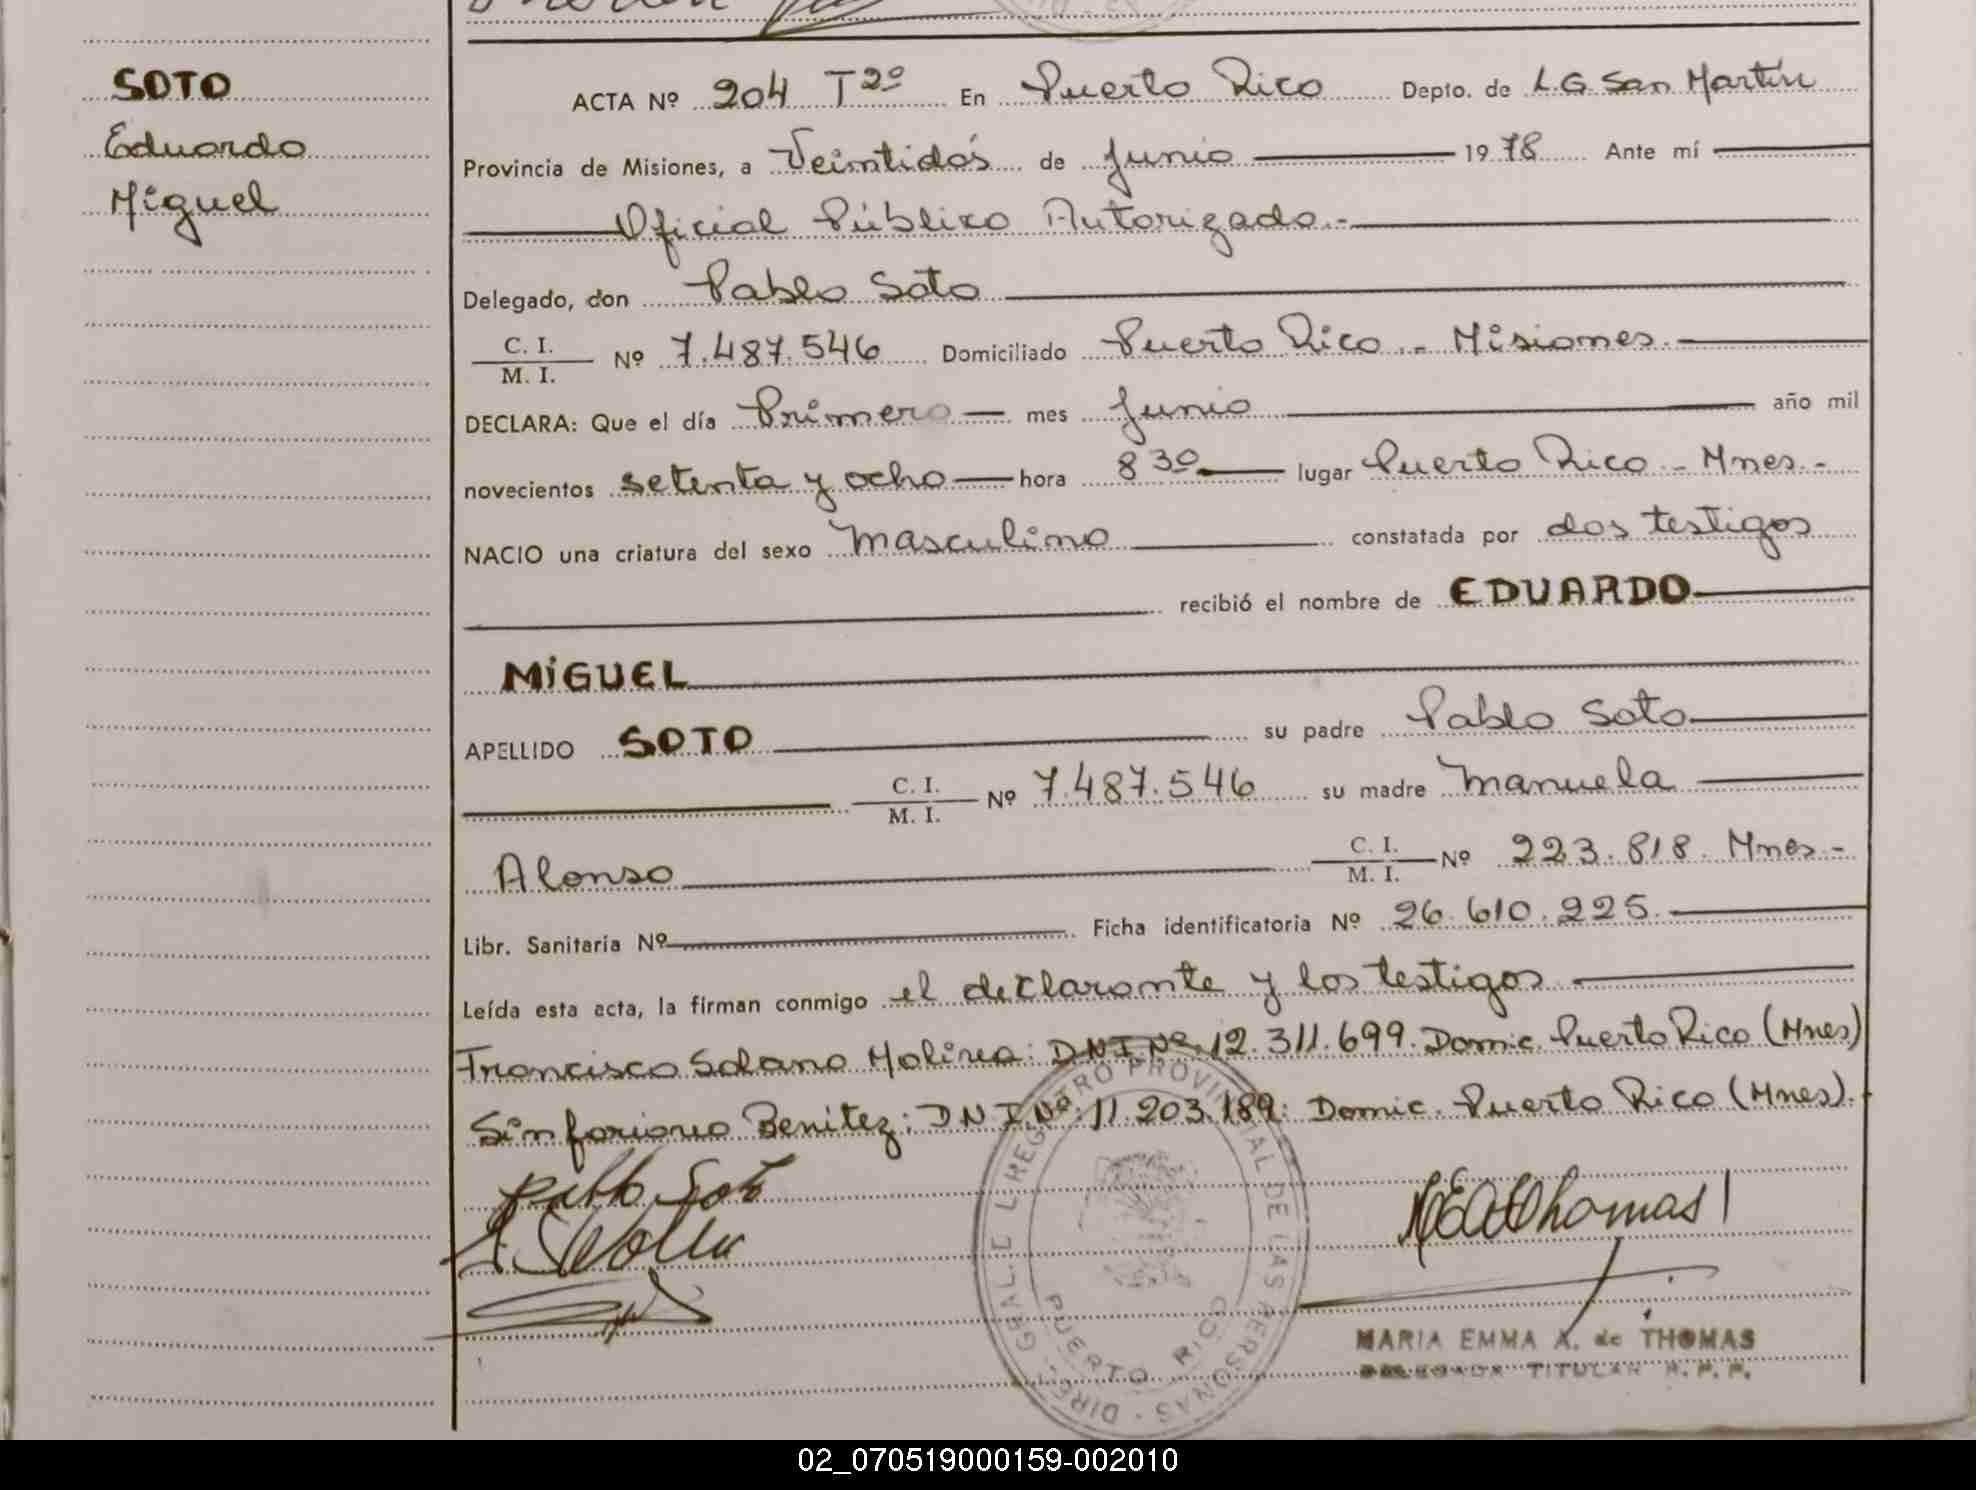 SOTO
Eduardo
Miguel
ACTA Nº 204 T2º En Puerto Rico Depto. de L.G. San Martín
Provincia de Misiones, a Veintidós de Junio 1978 Ante mí
Oficial Público Autorizado.-
Delegado, don Pablo Soto
C. I.
M. I.
Nº 7.487.546 Domiciliado Puerto Rico - Misiones.
DECLARA: Que el día Primero mes Junio año mil
novecientos setenta y ocho hora 8 30 lugar Puerto Rico - Mnes.-
NACIO una criatura del sexo Masculino constatada por dos testigos
recibió el nombre de EDUARDO
MIGUEL
APELLIDO SOTO su padre Pablo Soto
C. I.
M. I.
Nº 7.487.546 su madre Manuela
Alonso C. I.
M. I.
Nº 223.818. Mnes-
Libr. Sanitaria Nº Ficha identificatoria Nº 26.610.225.
Leída esta acta, la firman conmigo el declarante y los testigos
Francisco Solano Molina: DNI Nº 12.311.699. Domic. Puerto Rico (Mnes)
Sinforiano Benitez: DNI Nº: 11.203.189: Domic. Puerto Rico (Mnes).
Pablo Soto
Thomas
DIREC. GRAL. DEL REGISTRO PROVINCIAL DE LAS PERSONAS
PUERTO RICO
MARIA EMMA A. de THOMAS
TITULAR R.P.P.
02_070519000159-002010